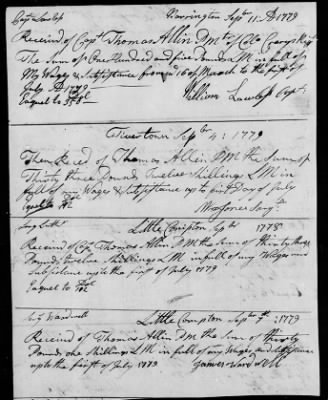 Barrington Septr 11. AD 1779
Receivd of Capt Thomas Allin PMtr of Colo Crarys Regt
The Sum of One Hundred and five Pounds LM in full of
My Wages & Subsistance from 16 of March to the first of
July AD 1779
Equel to
William Lawless Capt
Tivertown Sepbr 4: 1779
Then Recd of Thomas Allin PM the Sum of
Thirty three Pounds Twelve Shillings LM in
full of my Wages & Subsistance up to first Day of July
Equel to
Little Compton 1778
Receivd of Capt Thomas Allin PM the Sum of thirty three
Pounds twelve Shillings LM in full of my Wages and
Subsistance up to the first of July 1779
Equel to
Little Compton Sepbr 1779
Receivd of Thomas Allin PM the Sum of thirty
Pounds one Shillings LM in full of my Wages and
up to the first of July 1779
James Wardwell